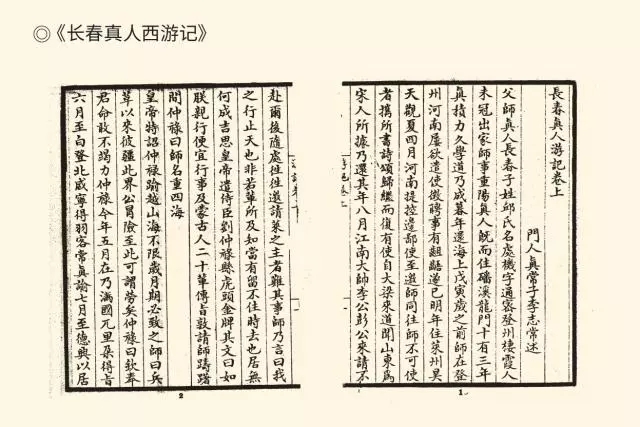 ◎《长春真人西游记》
長春真人游記卷上
門人真常子李志常述
父師真人長春子姓邱氏名處機字通密登州棲霞人
未冠出家師事重陽真人既而住磻溪龍門十有三年
真積力久學道乃成暮年還海上戊寅歲之前師在登
州河南屢欲遣使徵聘事有齟齬遂已明年住萊州昊
天觀夏四月河南提控邊鄙使至邀師同往師不可使
者攜所書詩頌歸繼而復有使自大梁來道聞山東為
宋人所據乃還其年八月江南大帥李公彭公來請不
1
赴爾後隨處往往邀請萊之主者難其事師乃言曰我
之行止天也非若輩所及知當有留不住時去也居無
何成吉思皇帝遣侍臣劉仲祿縣虎頭金牌其文曰如
朕親行便宜行事及蒙古人二十輩傳旨敦請師躊躇
間仲祿曰師名重四海
皇帝特詔仲祿踰越山海不限歲月期必致之師曰兵
革以來彼疆此界公冒險至此可謂勞矣仲祿曰欽奉
君命敢不竭力仲祿今年五月在乃滿國兀里朶得旨
六月至白登北威寧得羽客常真諭七月至德興以居
2